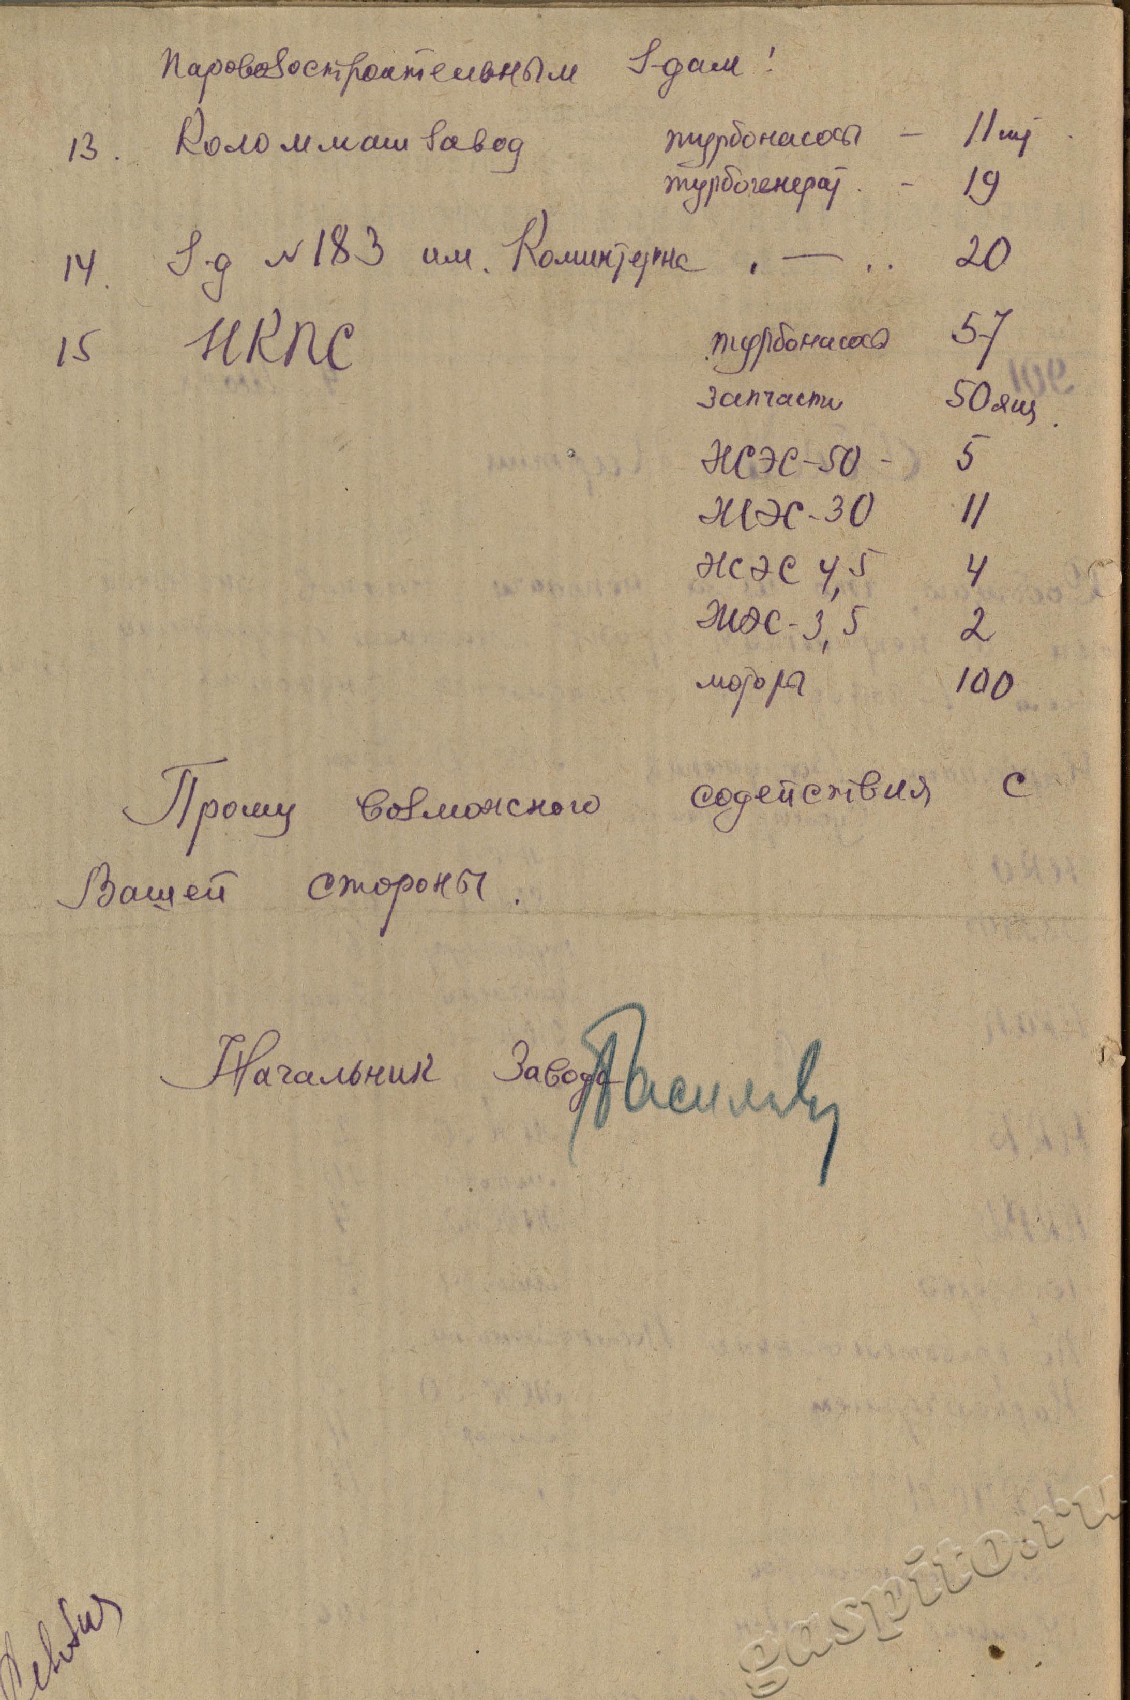 Паровозостроительным З-дам!
13. Коломмашзавод турбонасосы – 11 шт.
турбогенерат. – 19
14. З-д № 183 им. Коминтерна . — .. 20
15 НКПС турбонасосы 57
запчасти 50 ящ.
ЖЭС-30 11
4,5 4
ЖЭС-3,5 2
моторы 100
Прошу возможного содействия с
Вашей стороны.
Начальник Завода
gaspito.ru